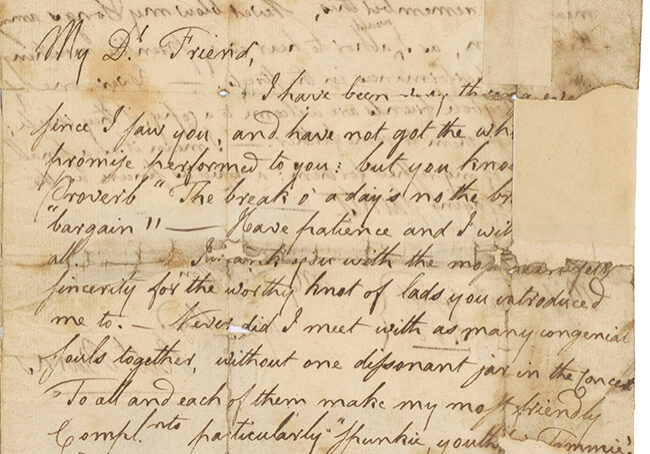 My Dr Friend,
I have been very throng ever
since I saw you, and have not got the wh
promise performed to you: but you kno
Proverb "The break o' a day's no the br
"bargain" — Have patience and I wil
all I thank you with the most
sincerity for the worthy knot of lads you introduced
me to. — Never did I meet with as many congenial
souls together, without one dissonant jar in the Concert
To all and each of them make my most friendly
Complnts particularly "spunkie, youth Tammie"